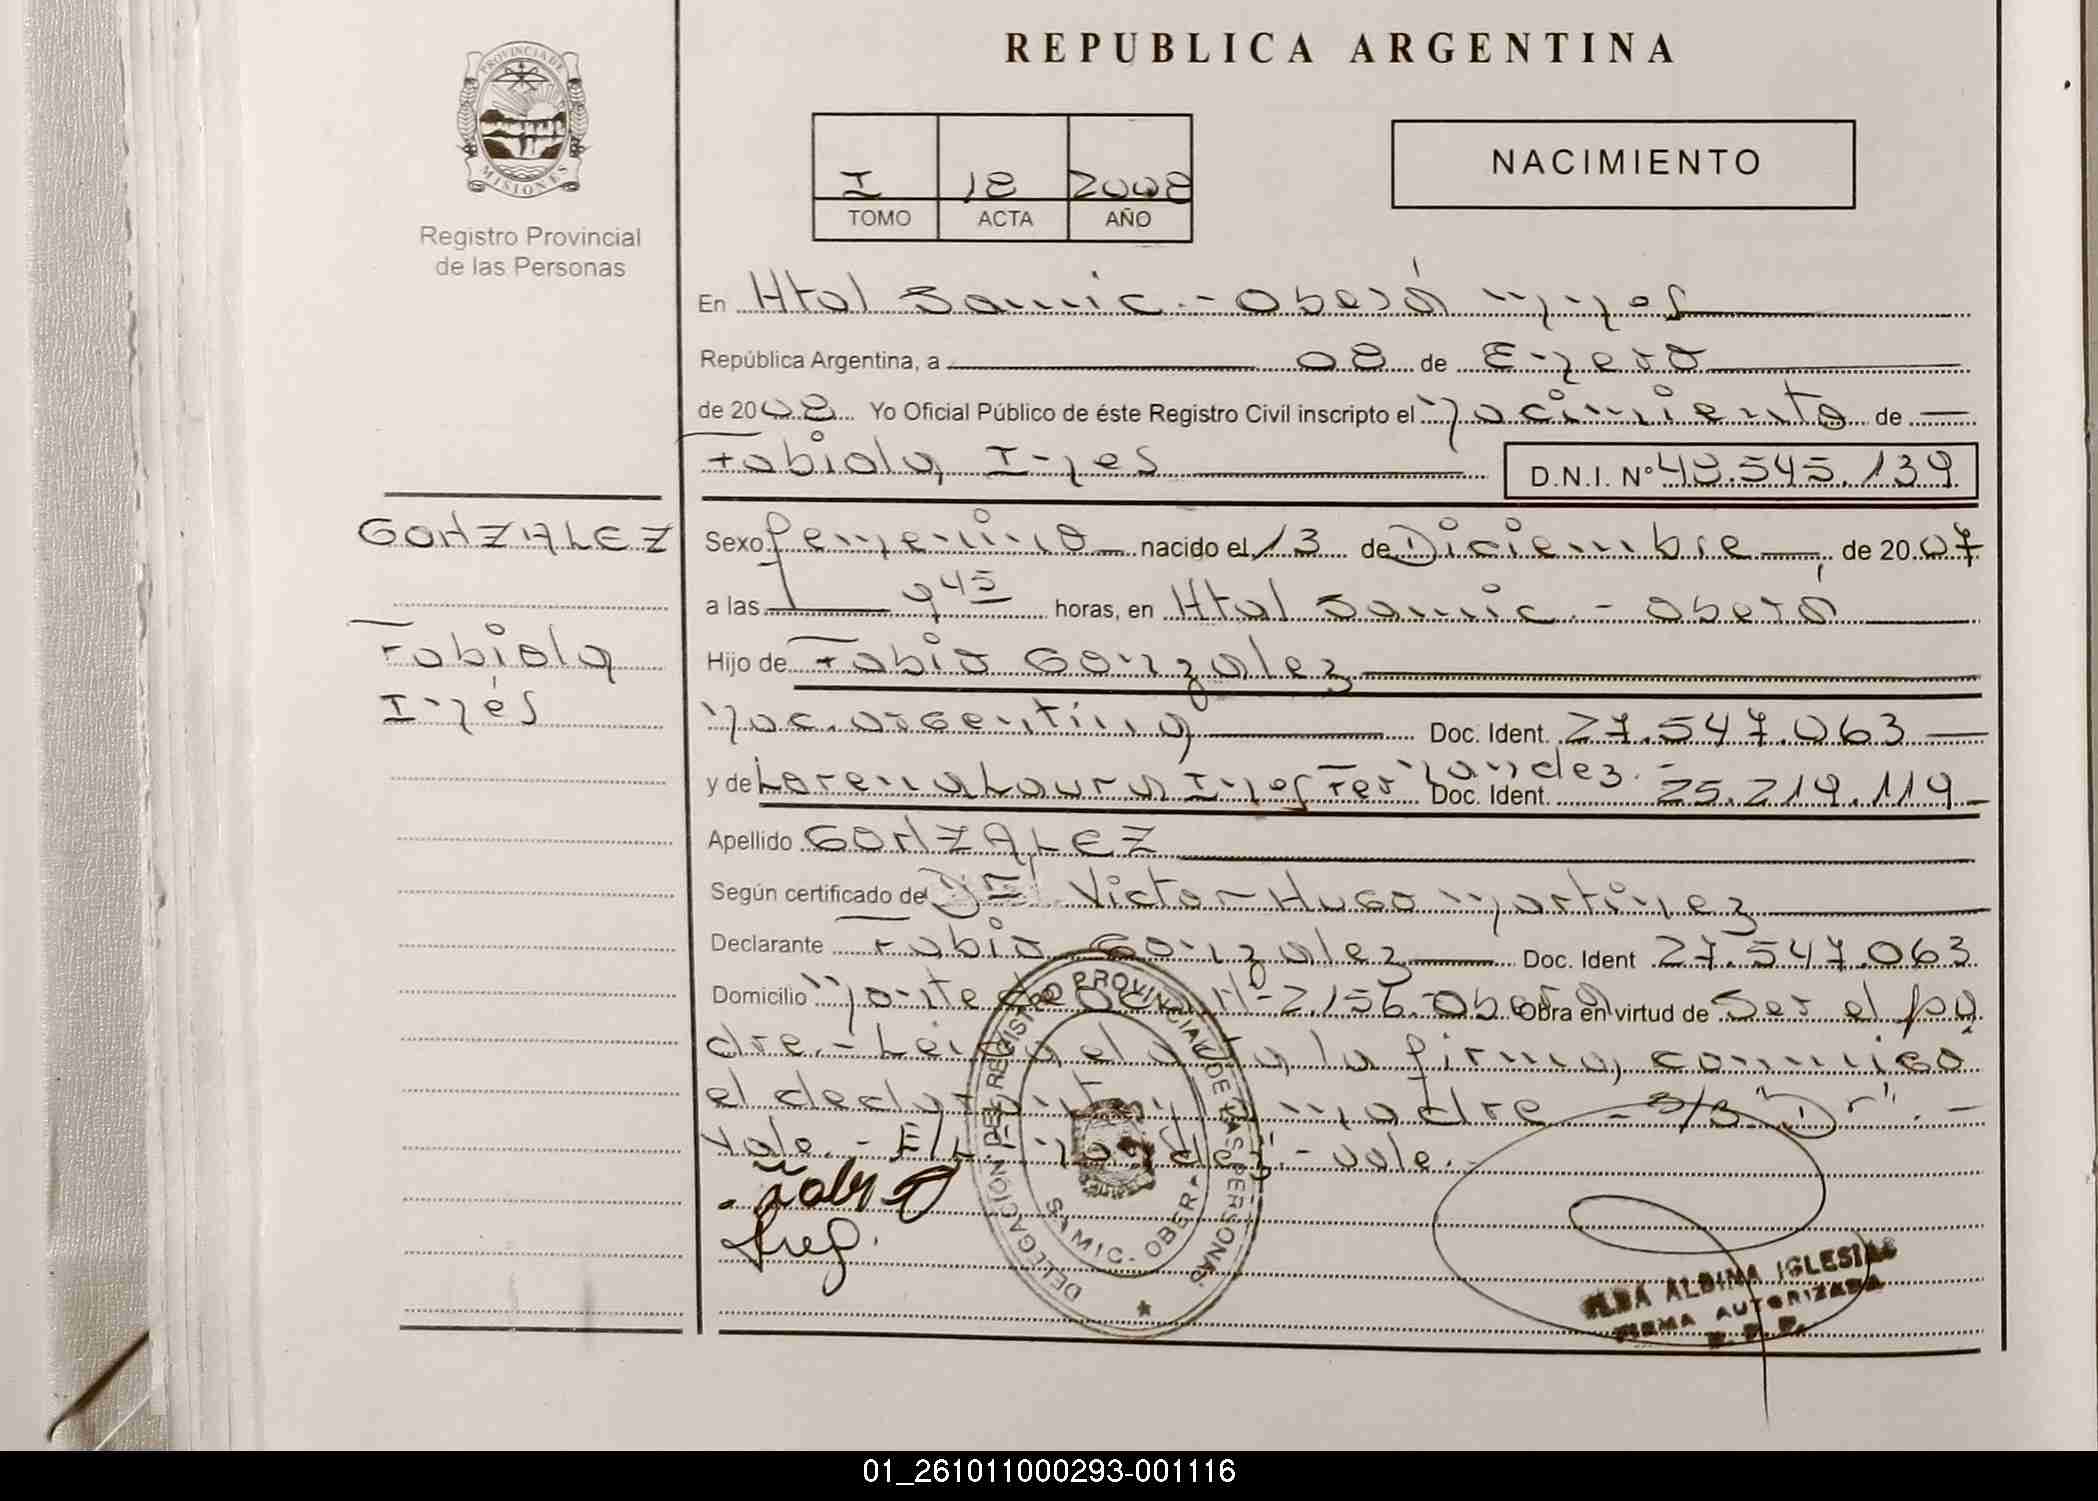 REPUBLICA ARGENTINA
PROVINCIA DE MISIONES
Registro Provincial
de las Personas
I 18 2008
TOMO ACTA AÑO
NACIMIENTO
En Htal Samic.- Oberá Mnes
República Argentina, a 08 de Enero
de 2008 Yo Oficial Público de éste Registro Civil inscripto el Nacimiento de
Fabiola Ines D.N.I. Nº 48.545.139
GONZALEZ
Fabiola
Inés
Sexo femenino nacido el 13 de Diciembre de 2007
a las 9 45 horas, en Htal Samic.- Oberá
Hijo de Fabio Gonzalez
Nac. argentina Doc. Ident. 27.547.063
y de Lorena Laura Ines Fernandez.- Doc. Ident. 25.219.119
Apellido GONZALEZ
Según certificado de Dr. Victor Hugo Martinez
Declarante Fabio Gonzalez Doc. Ident 27.547.063
Domicilio Monte de Oca Nº 2.156.-Oberá Obra en virtud de Ser el pa
dre.- Leída el acta, la firma, conmigo
el declarante y la madre.- S/S "Dr".-
Vale.- E/L "nandez".- Vale.-
DELEGACION DEL REGISTRO PROVINCIAL DE LAS PERSONAS
SAMIC - OBERA
ELBA ALBINA IGLESIAS
FIRMA AUTORIZADA
R. P. P.
01_261011000293-001116